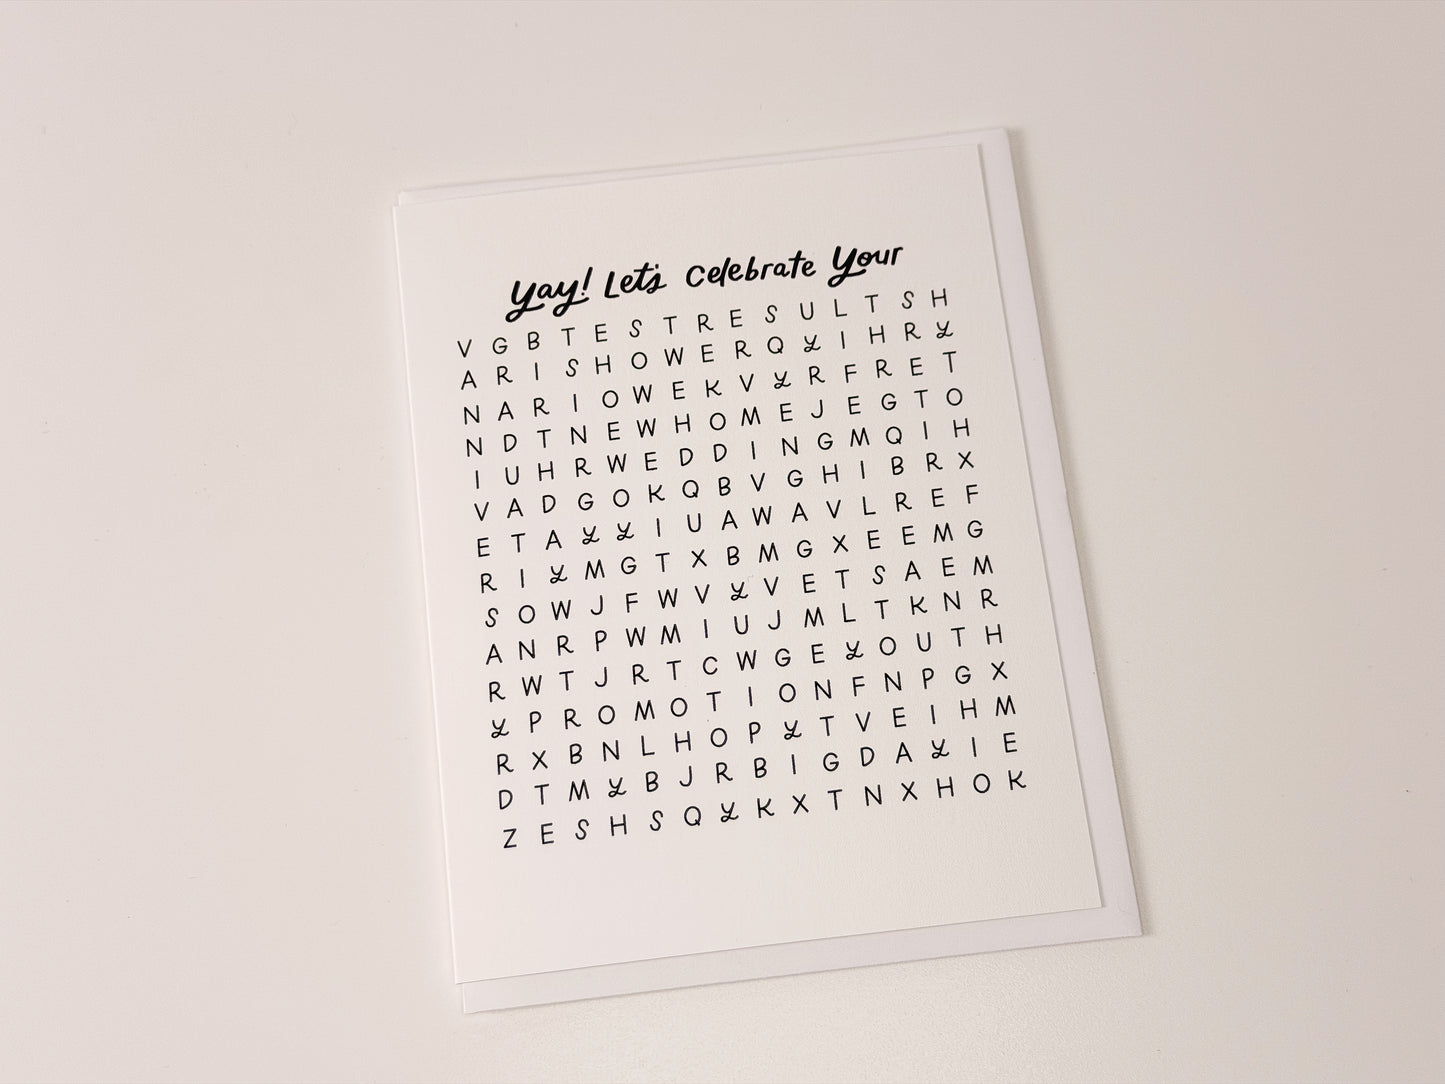 Yay! Let's Celebrate Your
V G B T E S T R E S U L T S H
A R I S H O W E R Q Y I H R Y
N A R I O W E K V Y R F R E T
N D T N E W H O M E J E G T O
I U H R W E D D I N G M Q I H
V A D G O K Q B V G H I B R X
E T A Y Y I U A W A V L R E F
R I Y M G T X B M G X E E M G
S O W J F W V Y V E T S A E M
A N R P W M I U J M L T K N R
R W T J R T C W G E Y O U T H
Y P R O M O T I O N F N P G X
R X B N L H O P Y T V E I H M
D T M Y B J R B I G D A Y I E
Z E S H S Q Y K X T N X H O K